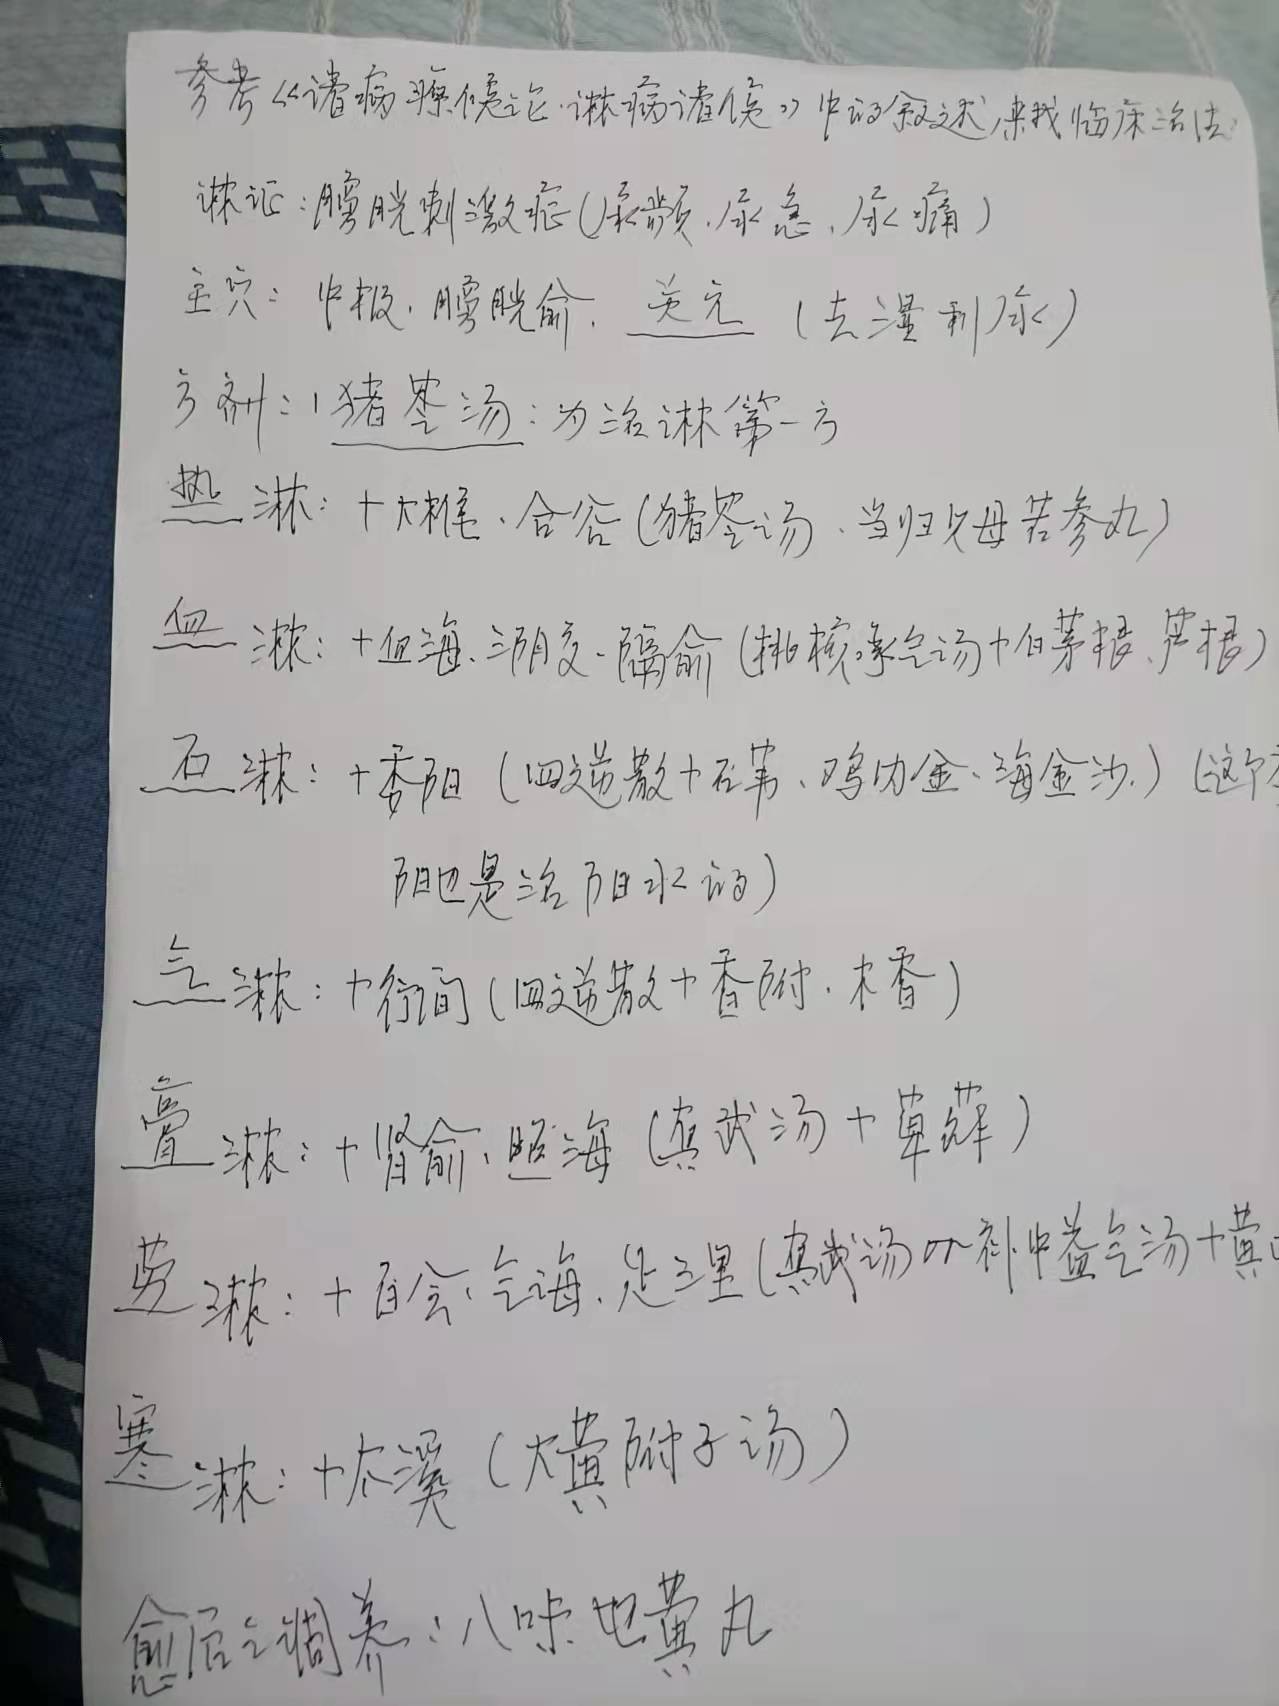 参考《诸病源候论·淋病诸候》中的叙述,来找临床治法
淋证:膀胱刺激症(尿频、尿急、尿痛)
主穴:中极、膀胱俞、(去湿利尿)
方剂:猪苓汤:为治淋第一方
热淋:+大椎、合谷(猪苓汤、当归贝母苦参丸)
血淋:+血海、三阴交、膈俞(桃核承气汤+白茅根、芦根)
石淋:+委阳(四逆散+石苇、鸡内金、海金沙)(这个
阳也是治阳水的)
气淋:+行间(四逆散+香附、木香)
膏淋:+肾俞、照海(真武汤+萆薢)
劳淋:+百会、气海、足三里(真武汤 补中益气汤+黄
寒淋:+太溪(大黄附子汤)
愈后之调养:八味地黄丸